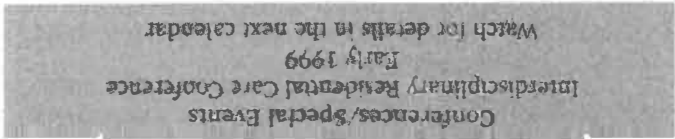 Conferences/Special Events
Interdisciplinary Residential Care Conference
Early 1999
Watch for details in the next calendar